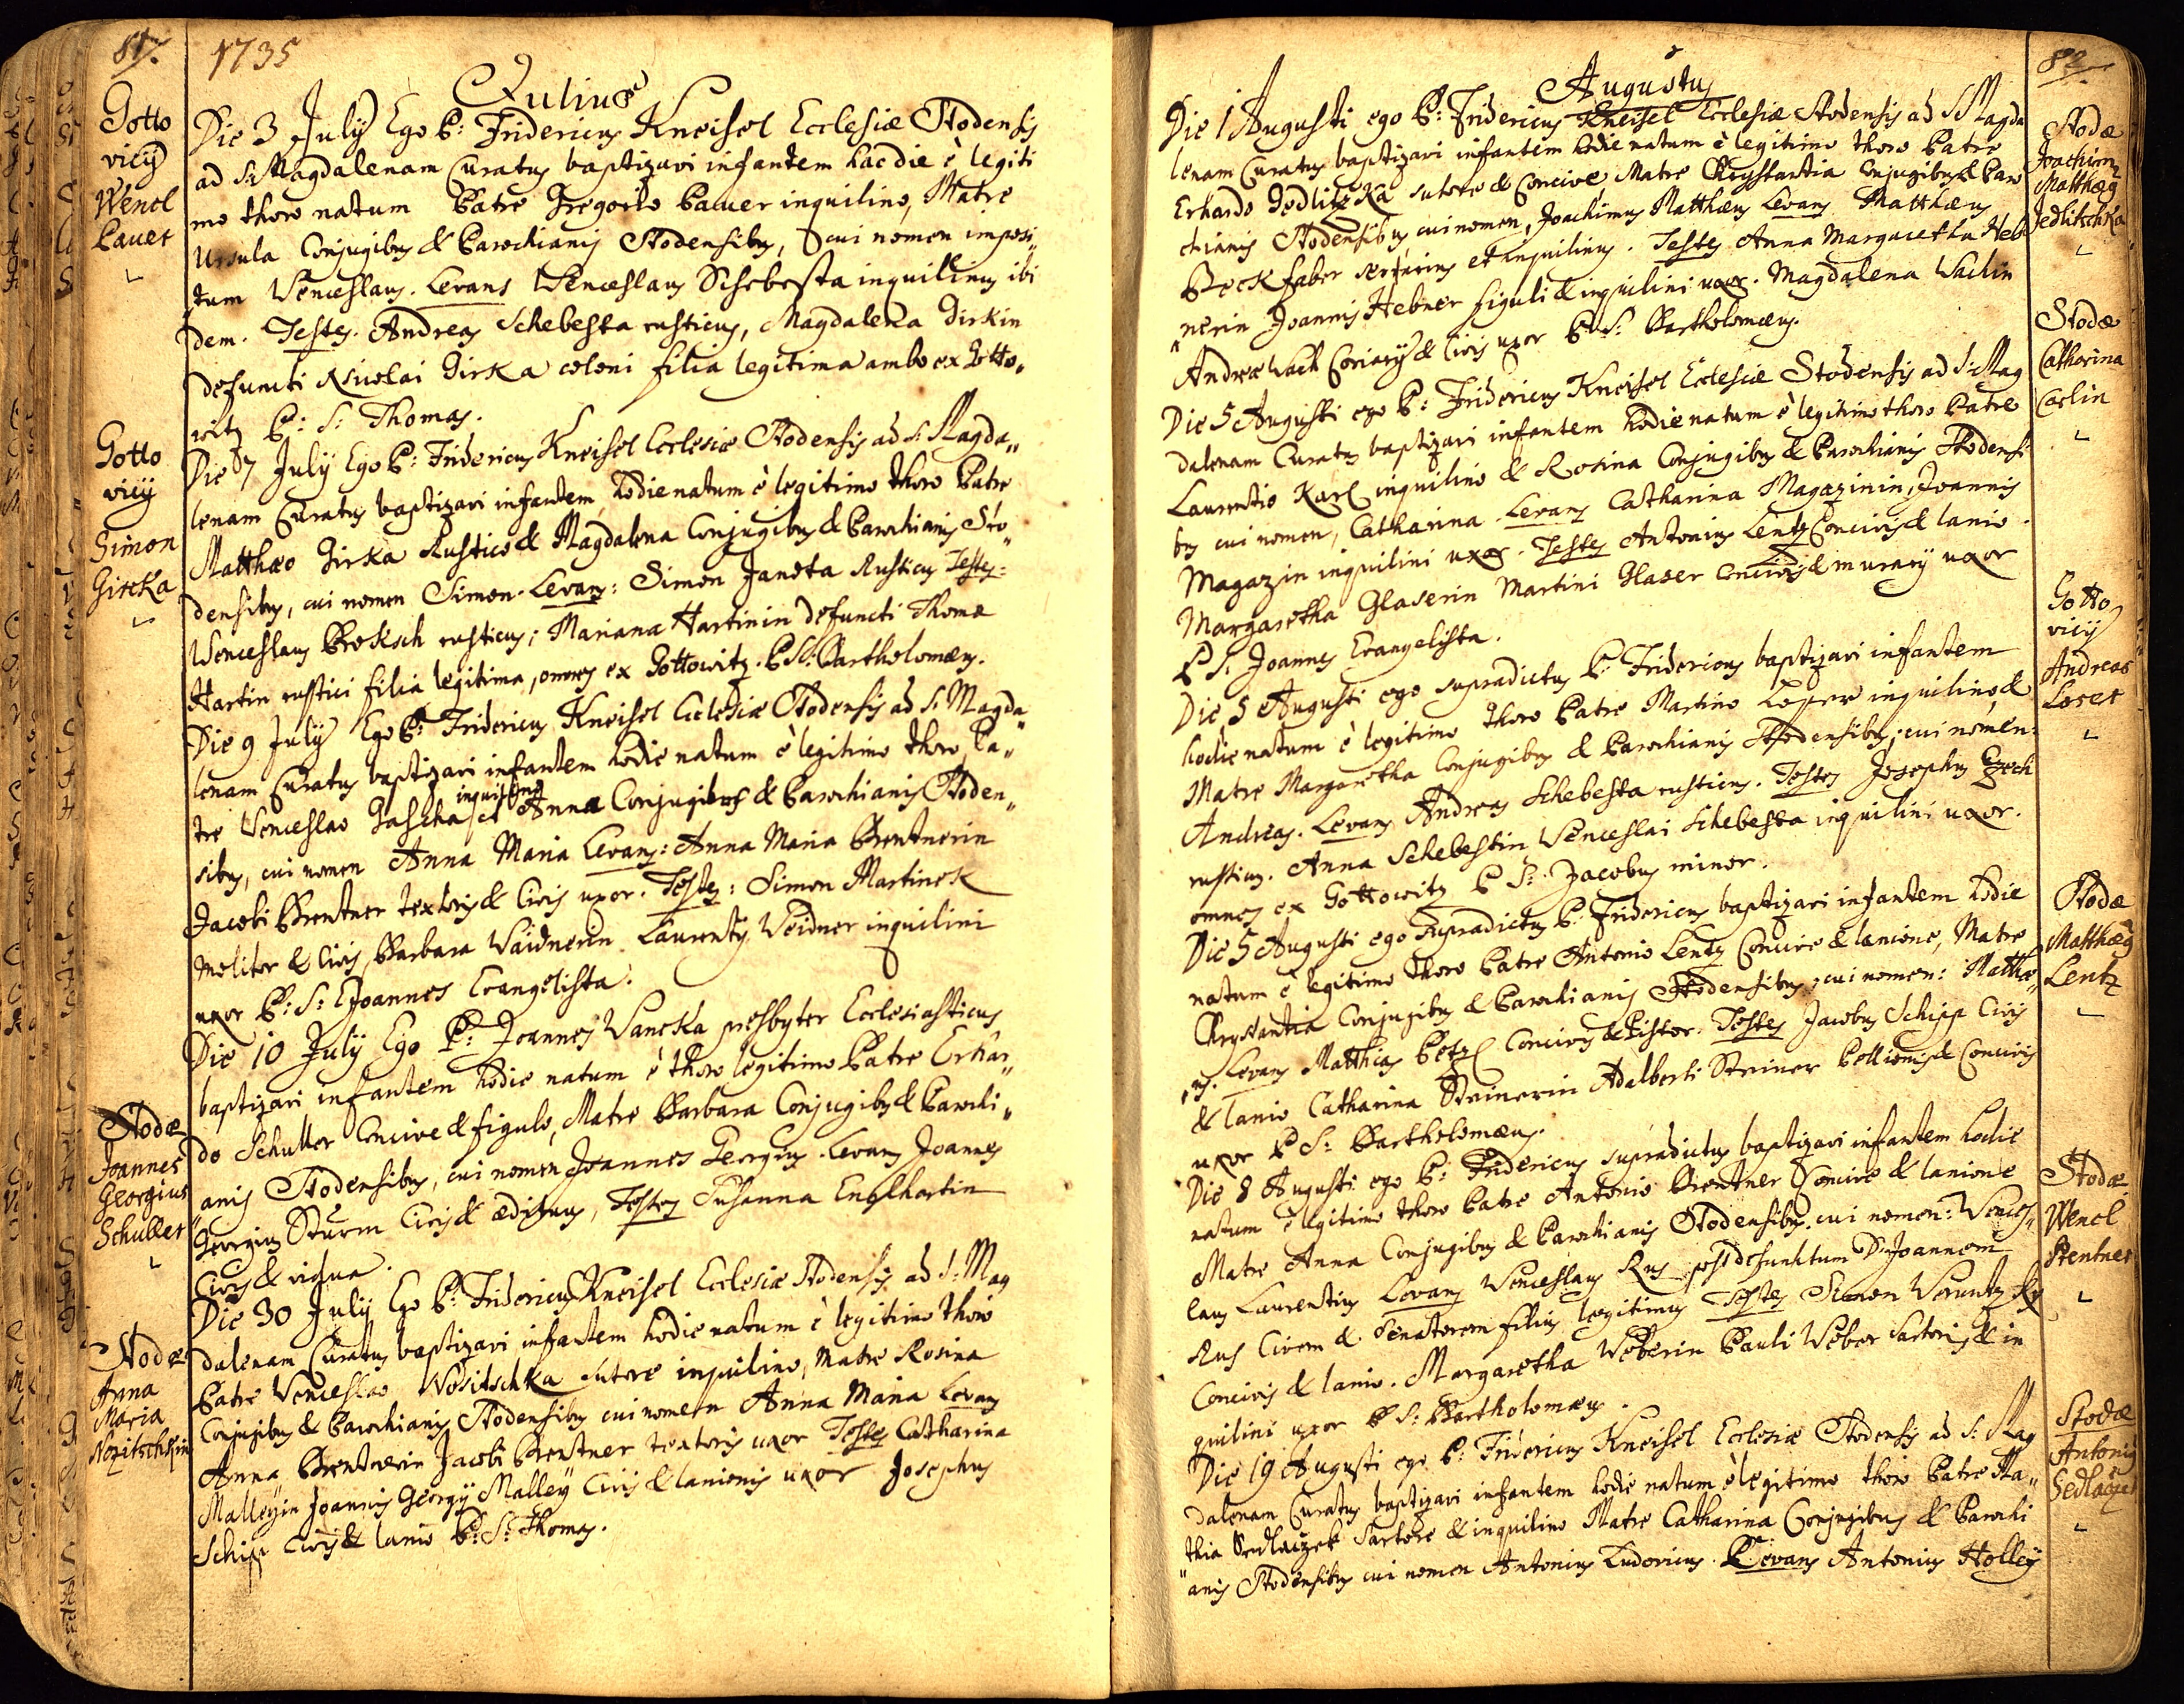 81.
1735
Julius
Gotto
vicÿ
Wencl
Pauer
Die 3 Julÿ Ego P: Fridericus Kneisel Ecclesiæ Stodensis
ad S: Magdalenam Curatus baptizavi infantem hac die è legiti
mo thoro natum Patre Gregorio Pauer inquilino, Matre
Ursula Conjugibus & Parochianis Stodensibus, cui nomen imposi„
tum Venceslaus. Levans Wenceslaus Schebesta inquilinus ibi
dem. Testes. Andreas Schebesta rusticus, Magdalena Girkin
defuncti Nicolai Girka coloni filia legitima ambo ex Gotto„
witz P: S: Thomas.
Gotto
vicÿ
Simon
Girka
Die 7 Julÿ Ego P: Fridericus Kneisel Ecclesiæ Stodensis ad S: Magda„
lenam Curatus baptizavi infantem hodie natum è legitimo thoro Patre
Matthæo Girka Rustico & Magdalena Conjugibus & Parochianis Sto„
densibus, cui nomen Simon. Levans: Simon Janota Rusticus Testes:
Wenceslaus Broksch rusticus; Mariana Hartinin defuncti Thomæ
Hartin rustici filia legitima, omnes ex Gottowitz. P S: Bartholomæus.
Die 9 Julÿ Ego P: Fridericus Kneisel Ecclesiæ Stodensis ad S: Magda„
lenam Curatus baptizavi infantem hodie natum è legitimo thoro Pa„
tre Venceslao Gascha inquilino et Anna Conjugibus & Parochianis Stoden„
sibus, cui nomen Anna Maria Levans: Anna Maria Brentnerin
Jacobi Brentner textoris & Civis uxor. Testes: Simon Martinek
Molitor & Civis, Barbara Vaidnerin Laurentÿ Veidner inquilini
uxor P: S: Joannes Evangelista.
Stodæ
Joannes
Georgius
Schuller
Die 10 Julÿ Ego P: Joannes Vaneka presbyter Ecclesiasticus
baptizavi infantem hodie natum è thoro legitimo Patre Erhar„
do Schuller Concive & figulo, Matre Barbara Conjugibus & Parochi„
anis Stodensibus, cui nomen Joannes Georgius. Levans Joannes
Georgius Sturm Civis & ædituus, Testes Susanna Englhartin
Civis & vidua.
Stodæ
Anna
Maria
Nozitschkin
Die 30 Julÿ Ego P: Fridericus Kneisel Ecclesiæ Stodensis ad S: Mag
dalenam Curatus baptizavi infantem hodie natum è legitimo thoro
Patre Venceslao Nositschka sutore inquilino, Matre Rosina
Conjugibus & Parochianis Stodensibus cui nomen Anna Maria Levans
Anna Brentnerin Jacobi Brentner textoris uxor Testes Catharina
Malleÿin Joannis Georgÿ Malleÿ Civis & lanionis uxor Josephus
Schipp Civis & lanio P: S: Thomas.
82
Augustus
Stodæ
Joachimus
Matthæus
Jedlitschka
Die 1 Augusti ego P: Fridericus Kneisel Ecclesiæ Stodensis ad S: Magda
lenam Curatus baptizavi infantem hodie natum è legitimo thoro Patre
Erhardo Gedlitzka sutore & Concive Matre Chrystantia Conjugibus & Paro
chianis Stodensibus cui nomen, Joachimus Matthæus Levans Matthæus
Beck faber serarius et inquilinus. Testes Anna Margaretha Heb
nerin Joannis Hebner figuli & inquilini uxor. Magdalena Wachin
Andreæ Wach Coriarÿ & Civis uxor P: S: Bartholomæus.
Stodæ
Catharina
Carlin
Die 5 Augusti ego P: Fridericus Kneisel Ecclesiæ Stodensis ad S: Mag
dalenam Curatus baptizavi infantem hodie natum è legitimo thoro Patre
Laurentio Karl inquilino & Rosina Conjugibus & Parochianis Stodensi
bus cui nomen, Catharina. Levans Catharina Magazinin, Joannis
Magazin inquilini uxor. Testes Antonius Lentz Concivis & lanio.
Margaretha Glaserin Martini Glaser Concivis & murarÿ uxor
P S: Joannes Evangelista.
Gotto
vicÿ
Andreas
Loser
Die 5 Augusti ego supradictus P: Fridericus baptizavi infantem
hodie natum è legitimo thoro Patre Martino Loser inquilino, &
Matre Margaretha Conjugibus & Parochianis Stodensibus; cui nomen:
Andreas. Levans Andreas Schebesta rusticus. Testes Josephus Czech
rusticus. Anna Schebestin Venceslai Schebesta inquilini uxor.
omnes ex Gottowitz P S: Jacobus minor.
Stodæ
Matthæus
Lentz
Die 5 Augusti ego supradictus P: Fridericus baptizavi infantem hodie
natum è legitimo thoro Patre Antonio Lentz Concive & lanione, Matre
Chrystantia Conjugibus & Parochianis Stodensibus; cui nomen: Matthæ„
us. Levans Matthias Petzl Concivis & Pistor. Testes Jacobus Schipp Civis
& lanio Catharina Steinerin Adalberti Steiner Pellionis & Concivis
uxor P S: Bartholomæus.
Stodæ
Wencl
Brentner
Die 8 Augusti ego P: Fridericus supradictus baptizavi infantem hodie
natum è legitimo thoro Patre Antonio Brentner Concive & lanione
Matre Anna Conjugibus & Parochianis Stodensibus. cui nomen: Vences„
laus Laurentius Levans Venceslaus Rus post defunctum D: Joannem
Rus Civem & Senatorem filius legitimus Testes Simon
Concivis & lanio. Margaretha Weberin Pauli Weber Sartoris & in
quilini uxor P S: Bartholomæus.
Stodæ
Antonius
Sedlaczek
Die 19 Augusti ego P: Fridericus Kneisel Ecclesiæ Stodensis ad S: Mag
dalenam Curatus baptizavi infantem hodie natum è legitimo thoro Patre Ma„
thia Sedlaczek Sartore & inquilino Matre Catharina Conjugibus & Parochi
„anis Stodensibus cui nomen Antonius Ludovicus. Levans Antonius Holleÿ